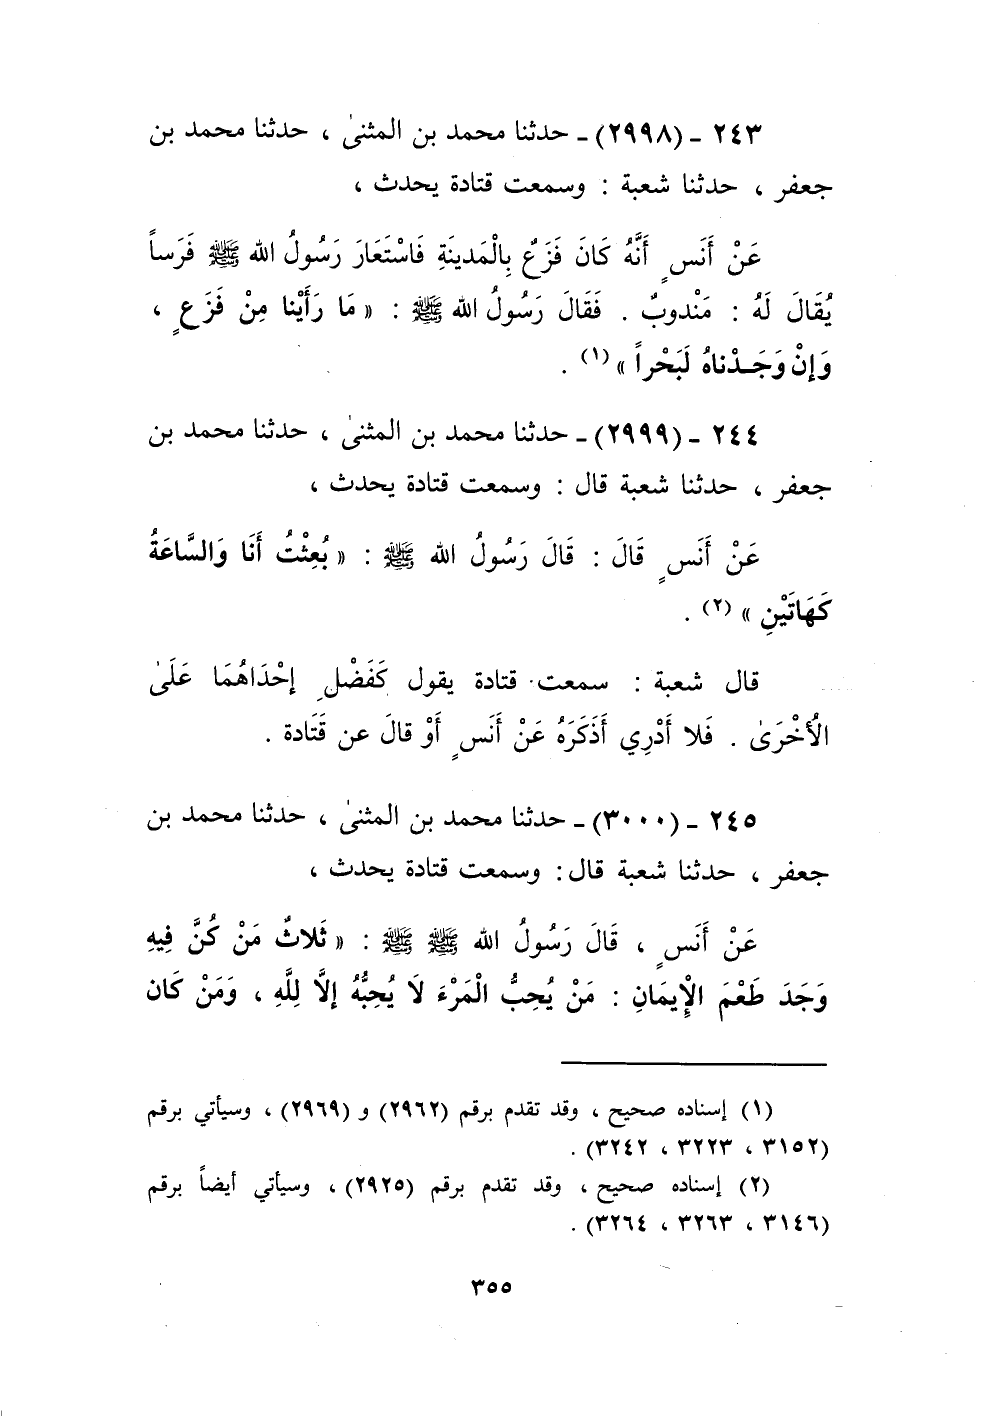 ٢٤٣ ـ (٢٩٩٨) ـ حدثنا محمد بن المثنىٰ ، حدثنا محمد بن
جعفر ، حدثنا شعبة : وسمعت قتادة يحدث ،
عَنْ أَنَسٍ أَنَّهُ كَانَ فَزَعٌ بِالْمَدينَةِ فَاسْتَعَارَ رَسُولُ الله ﷺ فَرَساً
يُقَالَ لَهُ : مَنْدوبٌ . فَقَالَ رَسُولُ الله ﷺ : « مَا رَأَيْنا مِنْ فَزَعٍ ،
وَإنْ وَجَدْناهُ لَبَحْراً » (١) .
٢٤٤ ـ (٢٩٩٩) ـ حدثنا محمد بن المثنىٰ ، حدثنا محمد بن
جعفر ، حدثنا شعبة قال : وسمعت قتادة يحدث ،
عَنْ أَنَسٍ قَالَ : قَالَ رَسُولُ الله ﷺ : « بُعِثْتُ أَنَا وَالسَّاعَةُ
كَهَاتَيْنِ » (٢) .
قال شعبة : سمعت قتادة يقول كَفَضْلِ إحْدَاهُمَا عَلَىٰ
الأُخْرَىٰ . فَلا أَدْرِي أَذَكَرَهُ عَنْ أَنَسٍ أَوْ قالَ عن قَتَادة .
٢٤٥ ـ (٣٠٠٠) ـ حدثنا محمد بن المثنىٰ ، حدثنا محمد بن
جعفر ، حدثنا شعبة قال : وسمعت قتادة يحدث ،
عَنْ أَنَسٍ ، قَالَ رَسُولُ الله ﷺ ﷺ : « ثَلاثٌ مَنْ كُنَّ فِيهِ
وَجَدَ طَعْمَ الْإِيمَانِ : مَنْ يُحِبُّ الْمَرْءَ لَا يُحِبُّهُ إلَّا لِلَّهِ ، وَمَنْ كَان
(١) إسناده صحيح ، وقد تقدم برقم (٢٩٦٢) و (٢٩٦٩) ، وسيأتي برقم
(٣١٥٢ ، ٣٢٢٣ ، ٣٢٤٢) .
(٢) إسناده صحيح ، وقد تقدم برقم (٢٩٢٥) ، وسيأتي أيضاً برقم
(٣١٤٦ ، ٣٢٦٣ ، ٣٢٦٤) .
٣٥٥